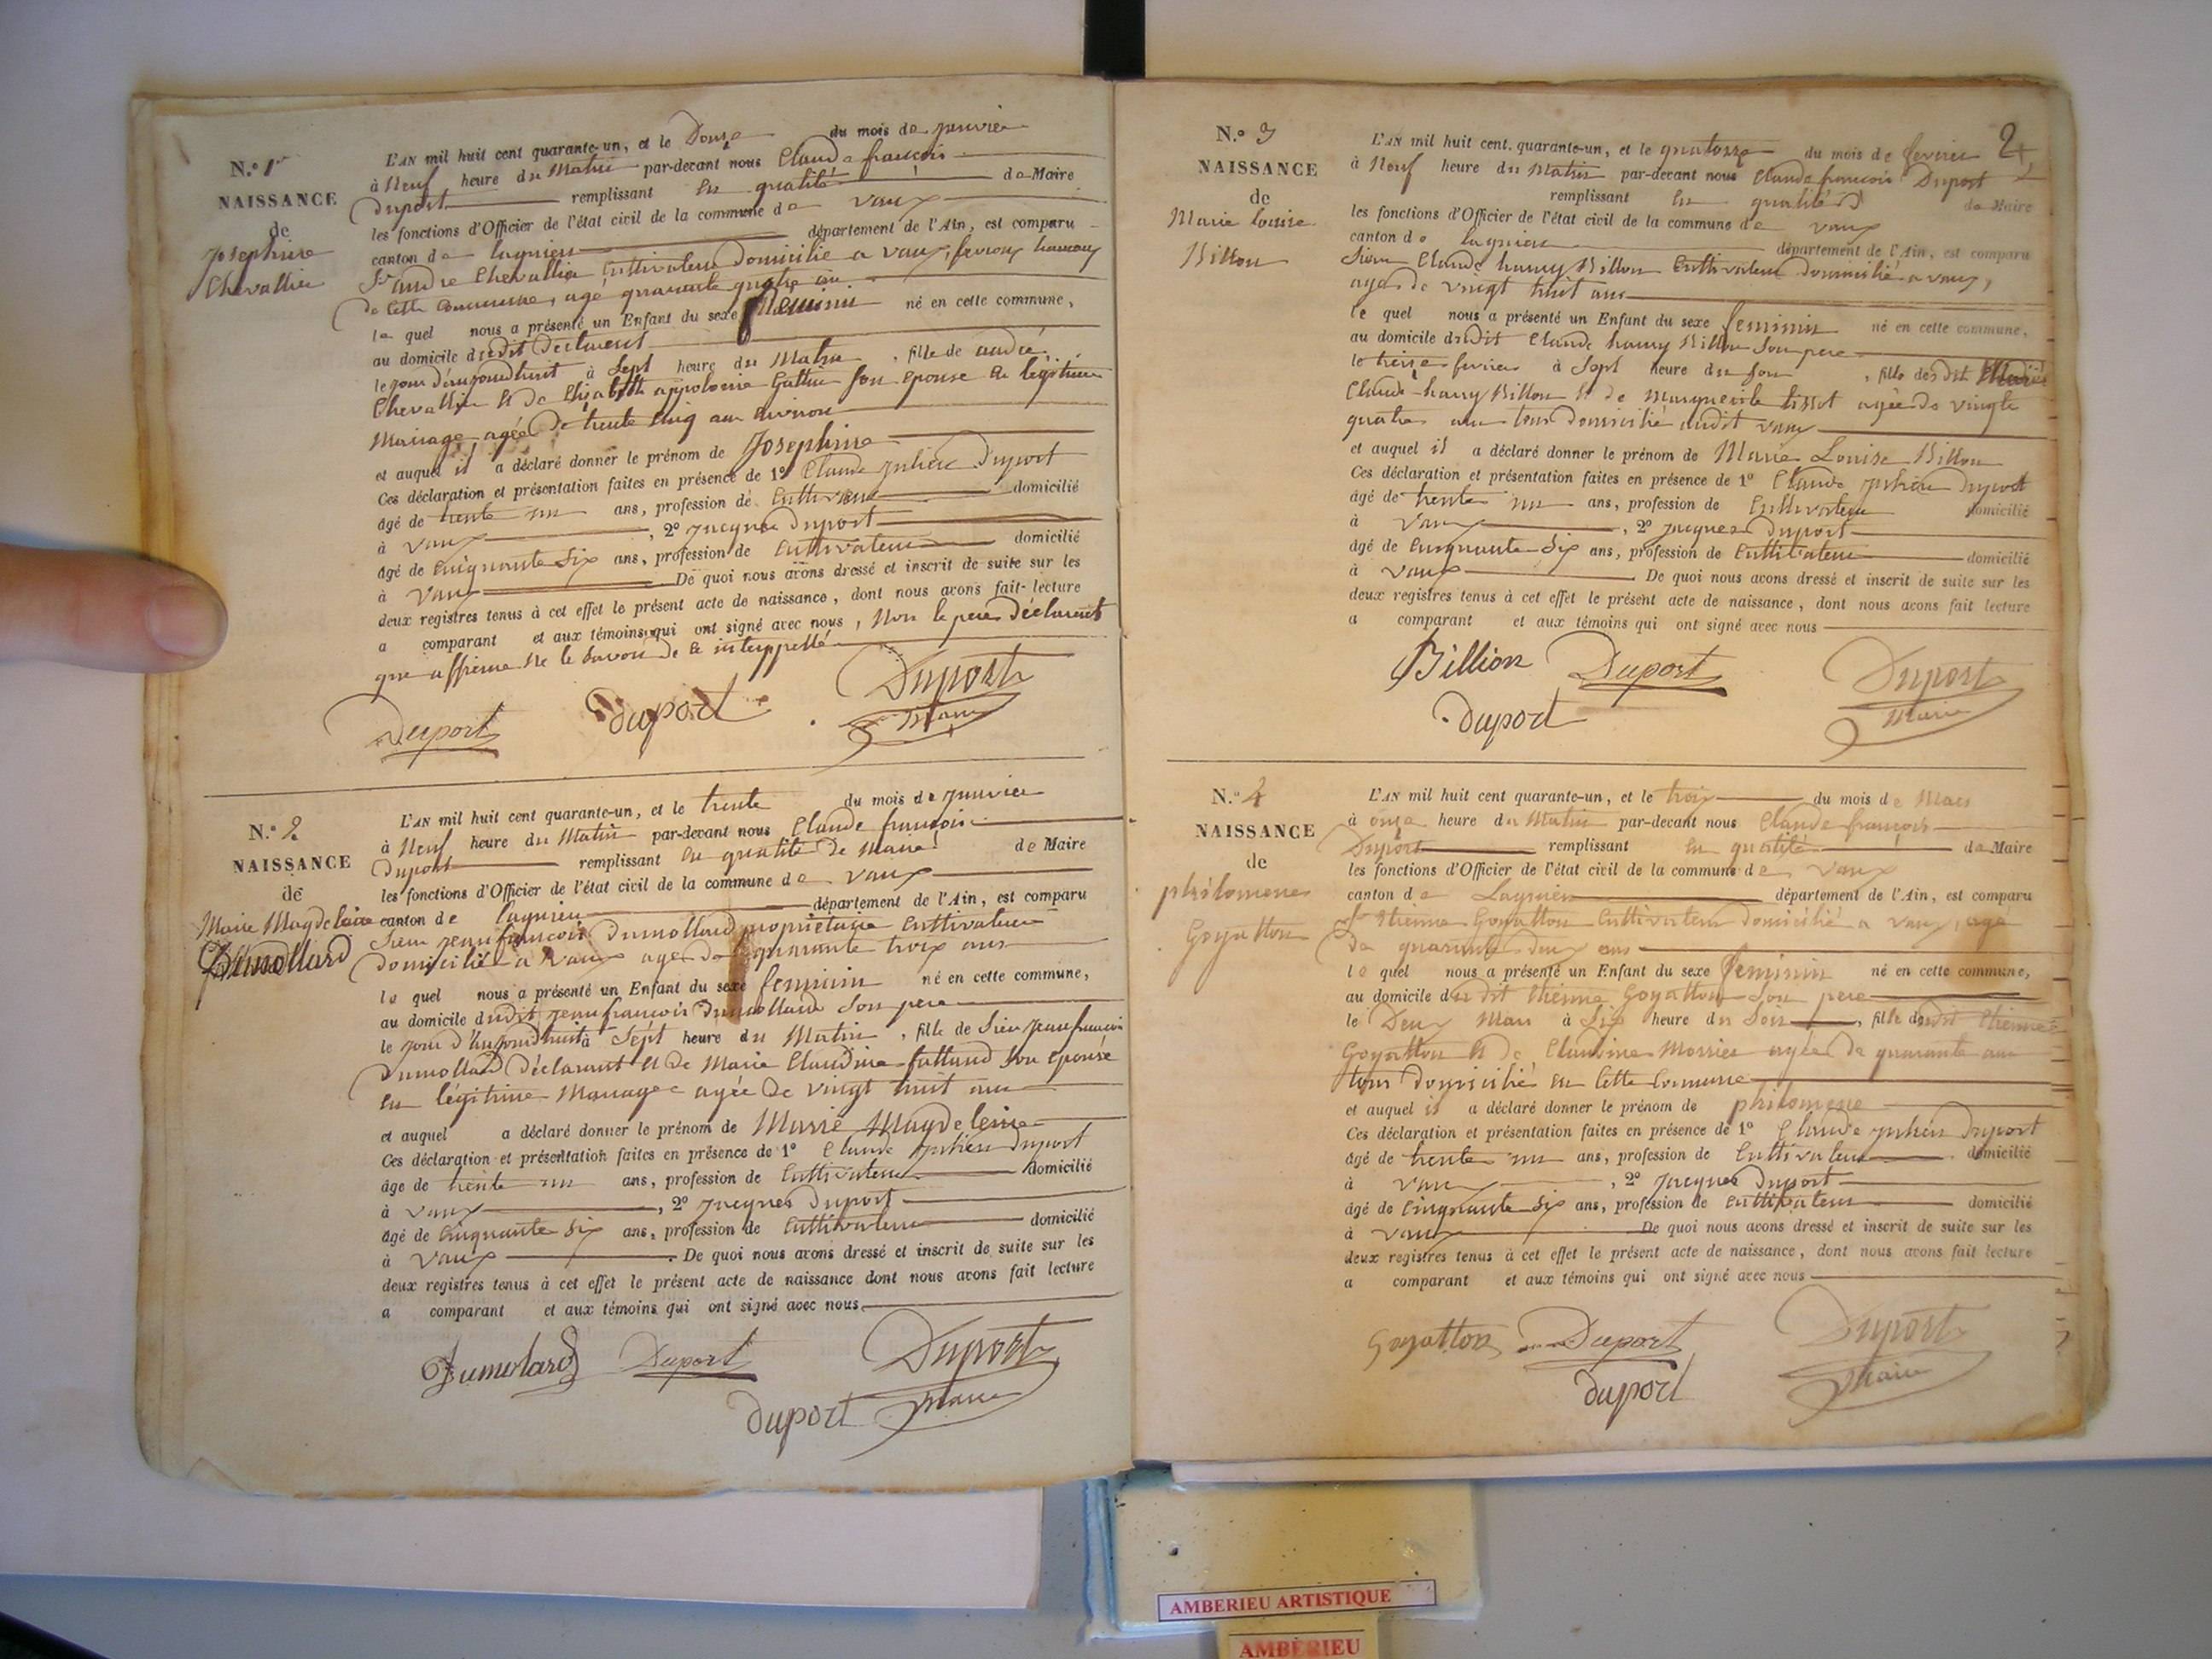 N.º 1er
NAISSANCE
de
Josephine
Chevallier
L'AN mil huit cent quarante-un, et le Douze du mois de janvier
à Neuf heure du Matin par-devant nous Claude françois
Duport remplissant en qualité de Maire
les fonctions d'Officier de l'état civil de la commune de vaux
canton de lagnieu département de l'Ain, est comparu
Sr andré Chevallier Cultivateur domicilié a vaux, fevroux hameau
de cette commune, agé quarante quatre ans
le quel nous a présenté un Enfant du sexe feminin né en cette commune,
au domicile dudit Déclarent
le jour d'aujourdhuit à Sept heure du Matin, fille de andré
Chevallier et de Elizabeth appolonie Guttin son epouse en légitime
Mariage agée de trente cinq ans environ
et auquel il a déclaré donner le prénom de Josephine
Ces déclaration et présentation faites en présence de 1º Claude julien Duport
âgé de trente un ans, profession de Cultivateur domicilié
à vaux, 2º jacques Duport
âgé de Cinquante Six ans, profession de Cultivateur domicilié
à vaux De quoi nous avons dressé et inscrit de suite sur les
deux registres tenus à cet effet le présent acte de naissance, dont nous avons fait lecture
a comparant et aux témoins qui ont signé avec nous, Non le pere Déclarent
que affirme ne le savoir de ce interppellé
Duport duport Duport
Maire
N.º 2
NAISSANCE
de
Marie Magdeleine
Dumollard
L'AN mil huit cent quarante-un, et le trente du mois de janvier
à Neuf heure du Matin par-devant nous Claude françois
Duport remplissant en qualité de Maire de Maire
les fonctions d'Officier de l'état civil de la commune de vaux
canton de lagnieu département de l'Ain, est comparu
Sieur jean françois Dumollard propriétaire Cultivateur
domicilié a vaux agé de quarante troix ans
le quel nous a présenté un Enfant du sexe feminin né en cette commune,
au domicile dudit jean françois Dumollard son pere
le jour d'aujourdhuit à Sept heure du Matin, fille de Sieur jean françois
Dumollard Déclarant et de Marie Claudine fattaud son epouse
en légitime Mariage agée de vingt huit ans
et auquel a déclaré donner le prénom de Marie Magdeleine
Ces déclaration et présentation faites en présence de 1º Claude julien Duport
âge de trente un ans, profession de Cultivateur domicilié
à vaux, 2º jacques Duport
âgé de Cinquante Six ans, profession de Cultivateur domicilié
à vaux. De quoi nous avons dressé et inscrit de suite sur les
deux registres tenus à cet effet le présent acte de naissance dont nous avons fait lecture
a comparant et aux témoins qui ont signé avec nous
Dumolard Duport Duport
duport Maire
2
N.º 3
NAISSANCE
de
Marie louise
Billon
L'AN mil huit cent. quarante-un, et le quatorze du mois de fevrier
à Neuf heure du Matin par-devant nous Claude françois Duport
remplissant en qualité de Maire
les fonctions d'Officier de l'état civil de la commune de vaux
canton de lagnieu département de l'Ain, est comparu
Sieur Claude hanry Billon Cultivateur domicilié a vaux,
agé de vingt huit ans
le quel nous a présenté un Enfant du sexe feminin né en cette commune,
au domicile dudit Claude hanry Billon son pere
le treize fevrier à Sept heure du soir, fille dudit
Claude hanry Billon et de Marguerite tissot agée de vingt
quatre ans tous domicilié audit vaux
et auquel il a déclaré donner le prénom de Marie Louise Billon
Ces déclaration et présentation faites en présence de 1º Claude julien Duport
âgé de trente un ans, profession de Cultivateur domicilié
à vaux, 2º jacques Duport
âgé de Cinquante Six ans, profession de Cultivateur domicilié
à vaux De quoi nous avons dressé et inscrit de suite sur les
deux registres tenus à cet effet le présent acte de naissance, dont nous avons fait lecture
a comparant et aux témoins qui ont signé avec nous
Billion Duport Duport
duport Maire
N.º 4
NAISSANCE
de
philomene
Goyatton
L'AN mil huit cent quarante-un, et le trois du mois de Mars
à onze heure du Matin par-devant nous Claude françois
Duport remplissant en qualité de Maire
les fonctions d'Officier de l'état civil de la commune de vaux
canton de Lagnieu département de l'Ain, est comparu
Sr Etienne Goyatton Cultivateur domicilié a vaux, agé
de quarante deux ans
le quel nous a présenté un Enfant du sexe feminin né en cette commune,
au domicile dudit Etienne Goyatton son pere
le Deux Mars à Six heure du Soir, fille dudit Etienne
Goyatton et de Claudine Morrier agée de quarante ans
tous domicilié en cette commune
et auquel il a déclaré donner le prénom de philomene
Ces déclaration et présentation faites en présence de 1º Claude julien Duport
âgé de trente un ans, profession de Cultivateur domicilié
à vaux, 2º jacques Duport
âgé de Cinquante Six ans, profession de Cultivateur domicilié
à vaux De quoi nous avons dressé et inscrit de suite sur les
deux registres tenus à cet effet le présent acte de naissance, dont nous avons fait lecture
a comparant et aux témoins qui ont signé avec nous
Goyatton Duport Duport
duport Maire
AMBERIEU ARTISTIQUE
AMBÉRIEU